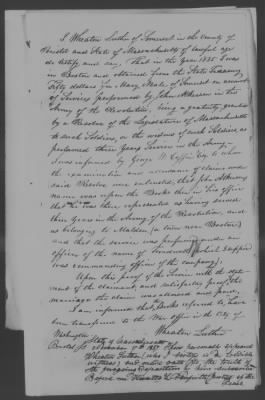 I Wheaton Luther of Somerset in the County of
Bristol and State of Massachusetts of lawful age
do testify and say, That in the year 1835 I was
in Boston and obtained from the State Treasury
Fifty dollars for Mary Male of Somerset on account
of Services performed by John in the
Army of the Revolution, being a gratuity granted
by a Resolve of the Legislature of Massachusetts
to such Soldiers, or the widows of such Soldiers as
performed three years Service in the Army.
I was informed by George W Coffin Esq to whom
the examination and allowance of claims under
said Resolve were entrusted, that John
name was upon the Books then in his office
that he was there represented as having served
three years in the Army of the Revolution, and
as belonging to Malden (a town near Boston)
and that the service was performed under an
officer of the name of
was commanding officer of the company).
Upon this proof of the Service with the state-
ment of the claimant, and satisfactory proof of the
marriage the claim was allowed and paid.
I am informed that the Books referred to have
been transferred to the War office in the City of
Washington.
Wheaton Luther
State of Massachusetts
Bristol, ss. 1837 Then personally appeared
Wheaton Luther (who I certify is a credible
witness) and made oath to the truth of
the foregoing deposition by him subscribed
Before me Justice of the
Peace